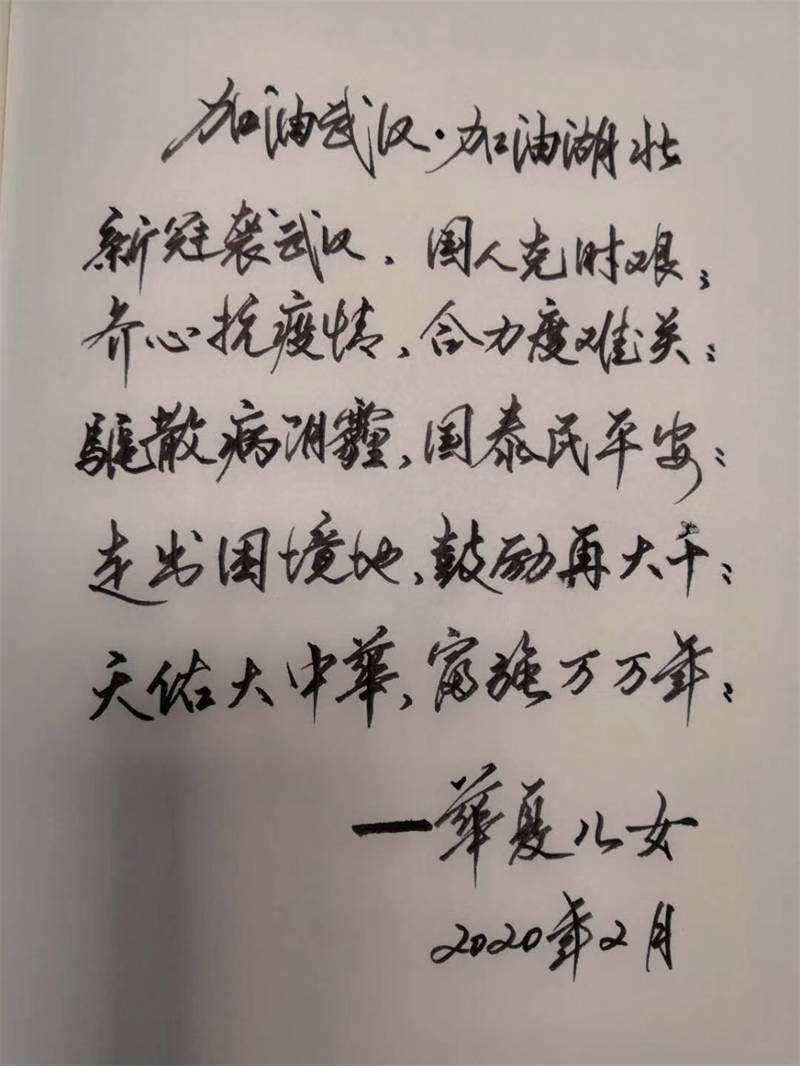 加油武汉·加油湖北
新冠袭武汉,国人克时艰;
齐心抗疫情,合力度难关;
驱散病阴霾,国泰民平安;
走出困境地,鼓励再大干;
天佑大中華,富强万万年;
一華夏儿女
2020年2月